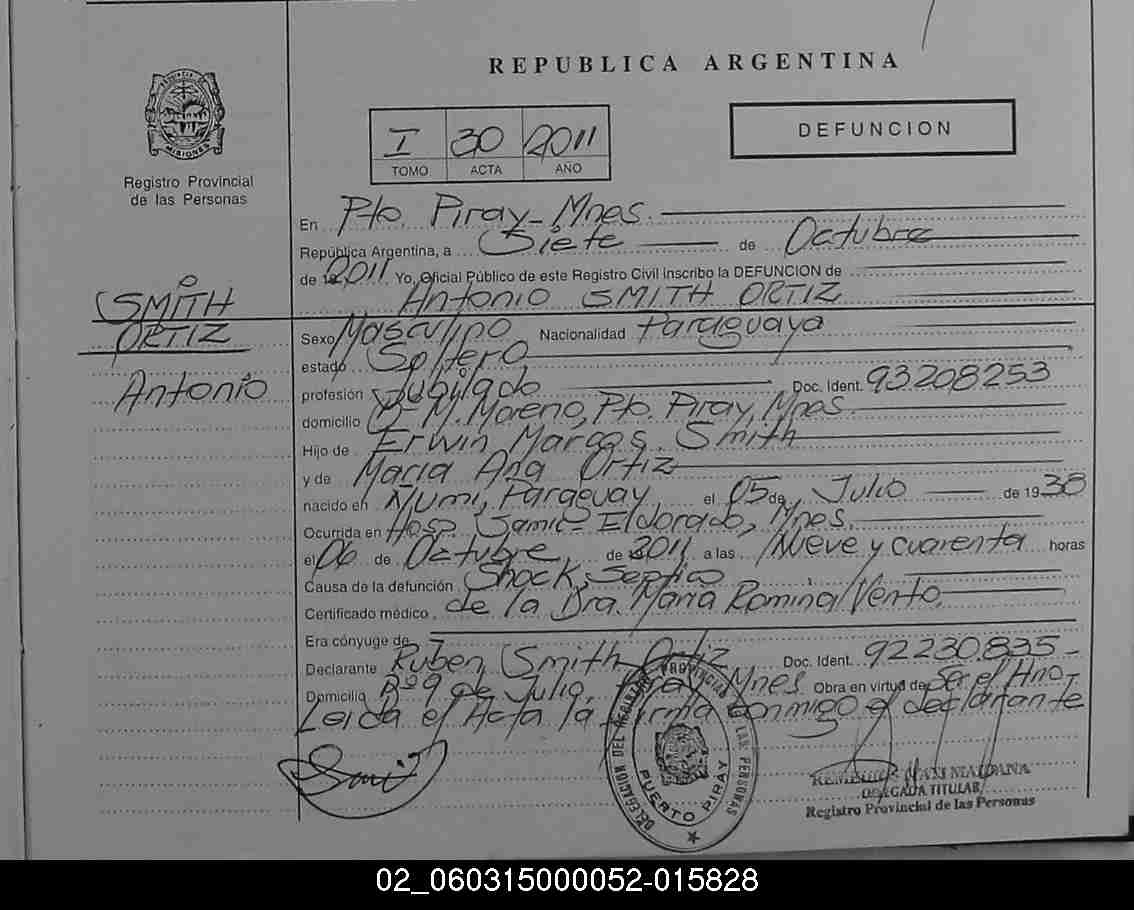 REPUBLICA ARGENTINA
PROVINCIA DE MISIONES
Registro Provincial
de las Personas
I 30 2011
TOMO ACTA AÑO
DEFUNCION
SMITH
ORTIZ
Antonio
En Pto. Piray - Mnes.
República Argentina, a Siete de Octubre
de 2011 Yo, Oficial Público de este Registro Civil Inscribo la DEFUNCION de
Antonio SMITH ORTIZ
Sexo Masculino Nacionalidad Paraguaya
estado Soltero
profesión Jubilado Doc. Ident. 93208253
domicilio Bº M. Moreno, Pto. Piray, Mnes.
Hijo de Erwin Marcos Smith
y de Maria Ana Ortiz
nacido en Ñumi, Paraguay, el 05 de Julio de 1938
Ocurrida en Hosp. Samic - Eldorado, Mnes.
el 06 de Octubre de 2011 a las Nueve y cuarenta horas
Causa de la defunción Shock, Septico
Certificado médico de la Dra. María Romina Vento.
Era cónyuge de
Declarante Ruben Smith Ortiz Doc. Ident. 92230.835-
Domicilio Bº 9 de Julio, Piray, Mnes Obra en virtud de Ser el Hno.-
Leida el Acta la firma conmigo el declarante
DELEGACION DEL REGISTRO PROVINCIAL DE LAS PERSONAS
PUERTO PIRAY
DELEGADA TITULAR
Registro Provincial de las Personas
02_060315000052-015828